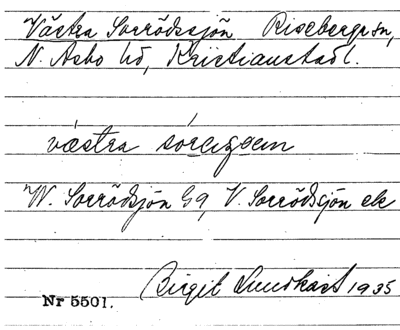 Västra Sorrödssjön Riseberga sn,
N. Åsbo hd, Kristianstad l.
västra
W. Sorrödsjön GA, V. Sorrödsjön ek
Birgit Lundkvist 1935
Nr 5501.